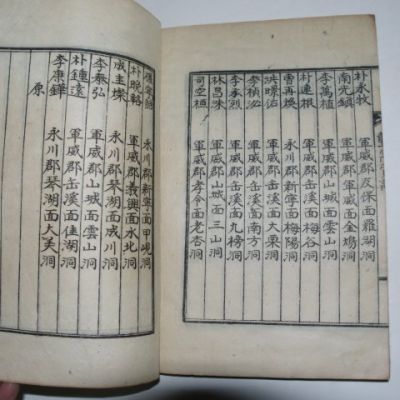 朴永牧 軍威郡友保面羅湖洞
南光鎭 軍威郡軍威面金鳩洞
李萬植 軍威郡山城面雲山洞
朴連根 軍威郡缶溪面梅谷洞
曺再煥 永川郡新寧面梅陽洞
洪曄佑 軍威郡缶溪面大栗洞
李禎泌 軍威郡缶溪面南方洞
李孝烈 軍威郡缶溪面九榜洞
林昌洙 軍威郡山城面三山洞
司空桓 軍威郡孝令面老杏洞
永川郡新寧面甲峴洞
朴晩輅 軍威郡義興面水北洞
成圭燦 永川郡琴湖面成川洞
李泰弘 軍威郡山城面雲山洞
朴鍾遠 軍威郡缶溪面佳湖洞
李康鏵 永川郡琴湖面大美洞
原